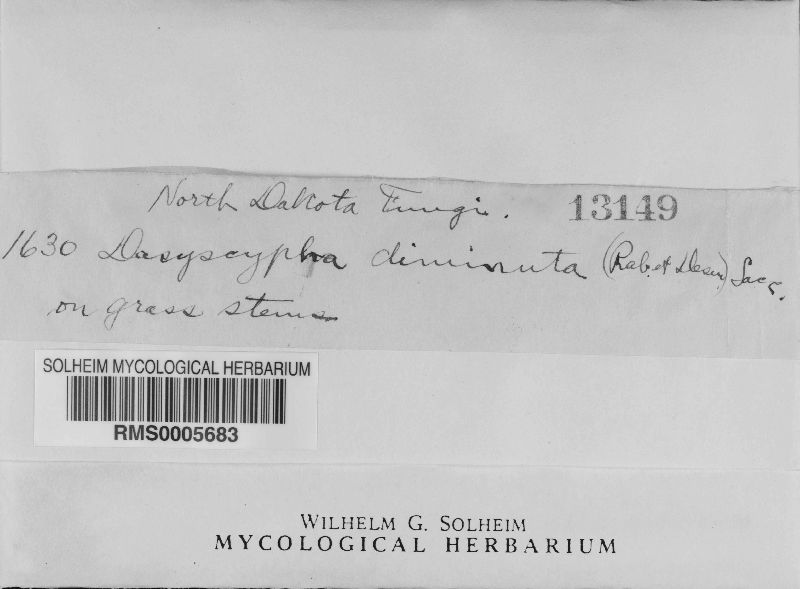 North Dakota Fungi. 13149
1630 Dasyscypha diminuta (Rab. et Desm.) Sacc.
on grass stems
SOLHEIM MYCOLOGICAL HERBARIUM
RMS0005683
WILHELM G. SOLHEIM
MYCOLOGICAL HERBARIUM